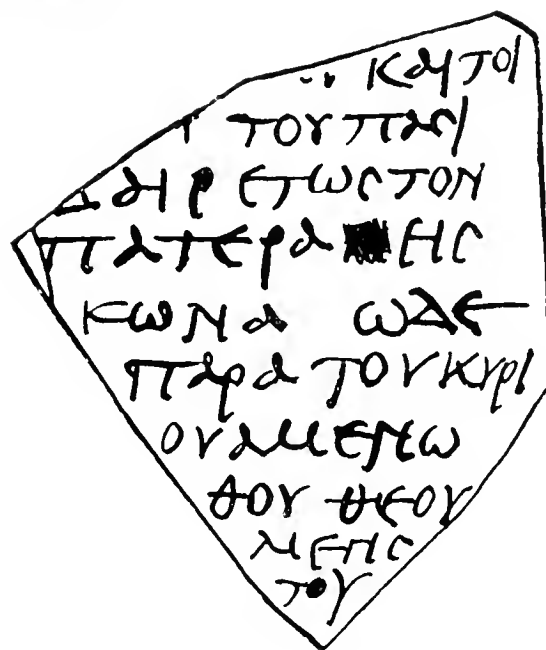 και τοι
του πασι
δαιρετως τον
πατερα εης
κωνα ωδε
παρα του κυρι
ου αμενω
θου θεου
μεγις
του